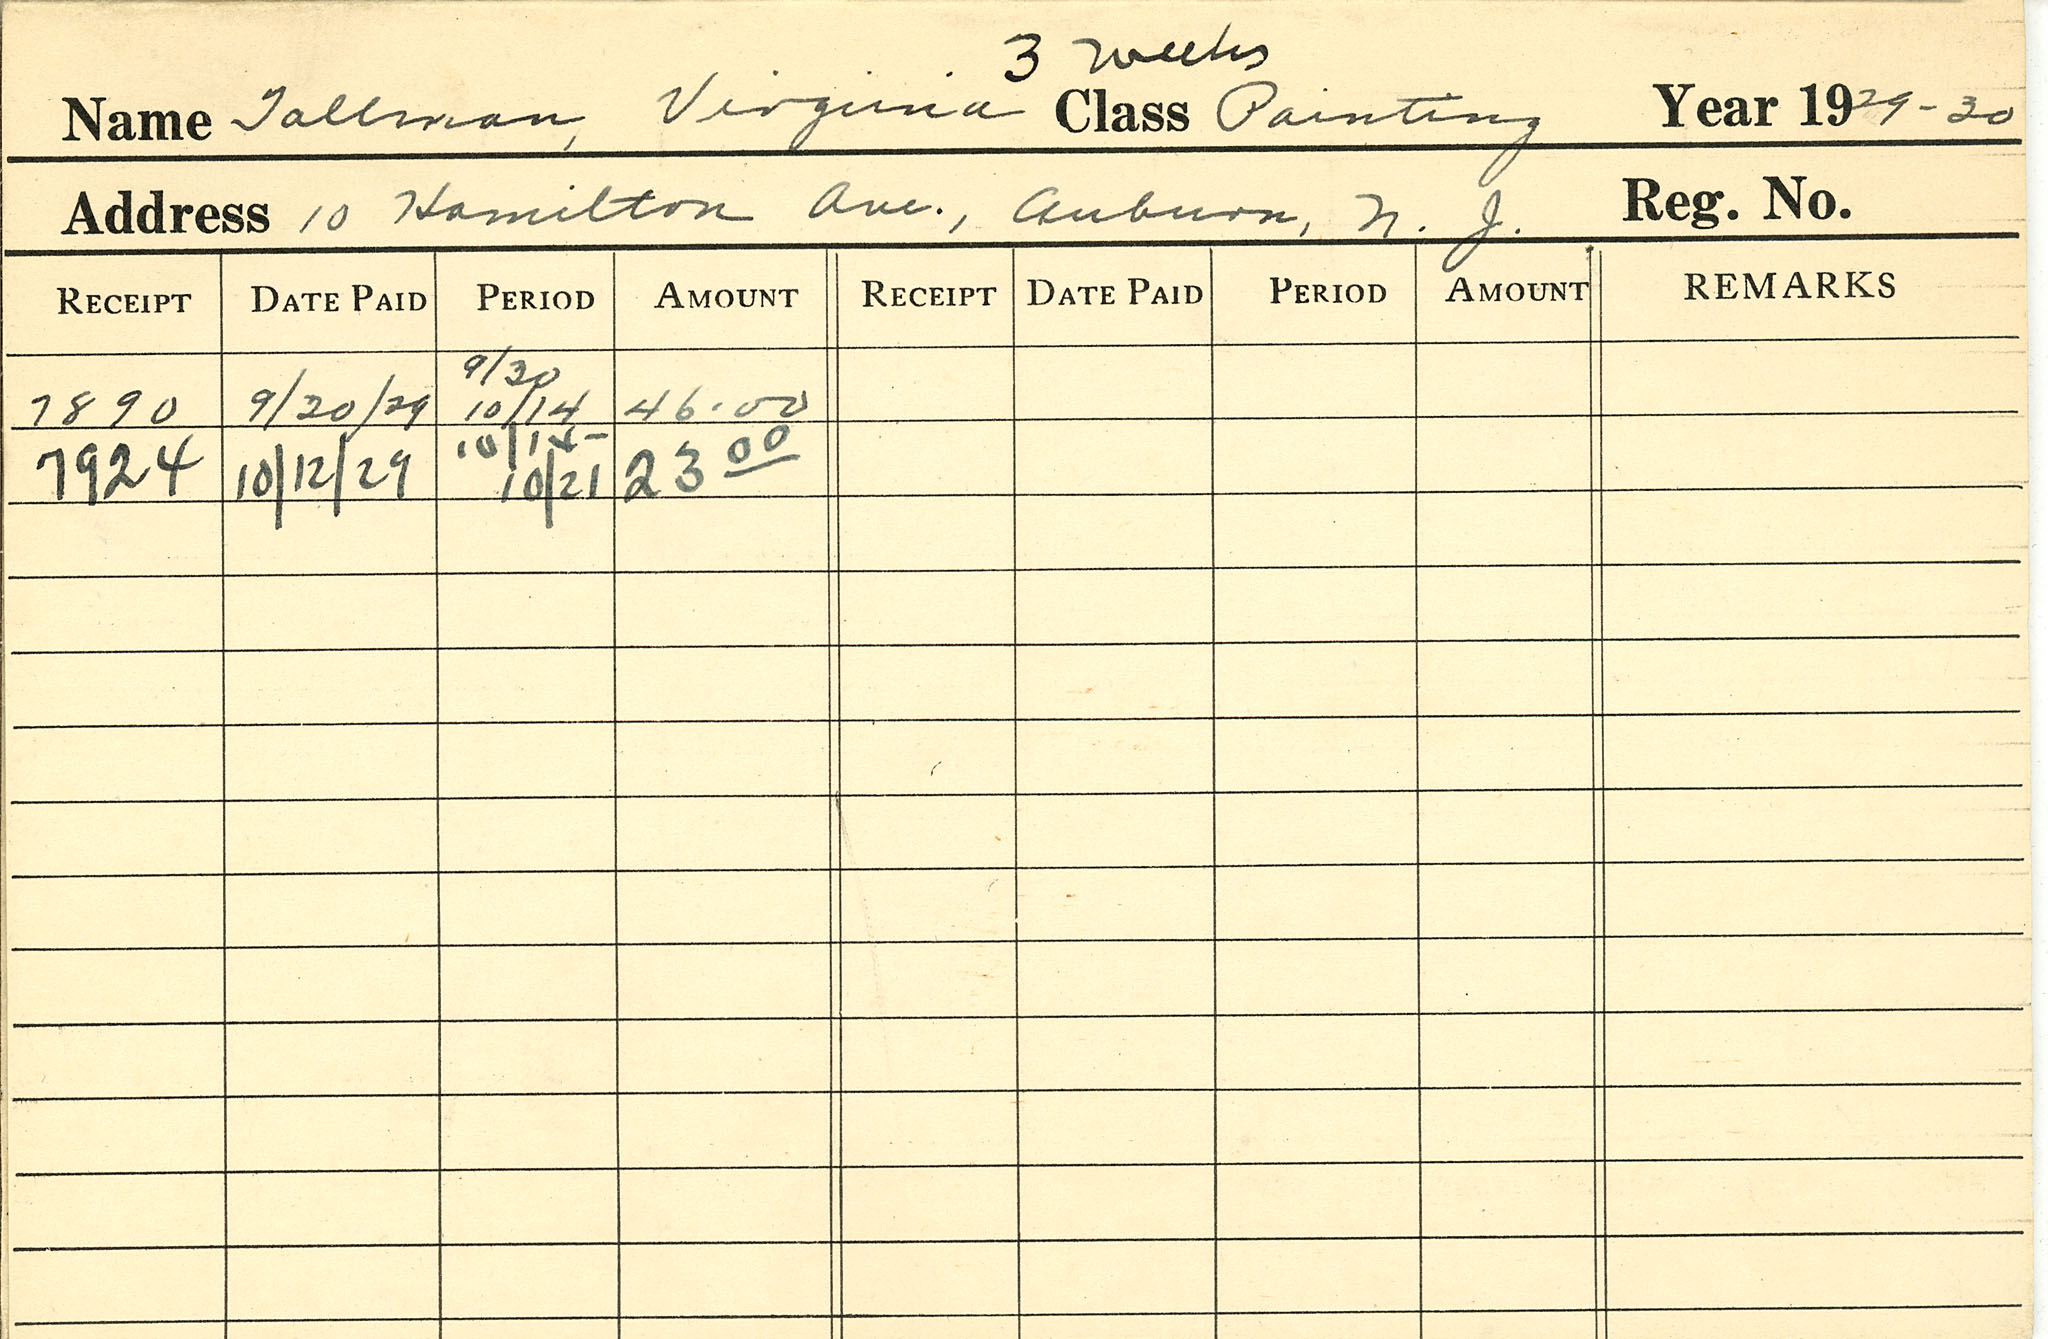 3 weeks
Name Tallman, Virginia Class Painting Year 1929-30
Address 10 Hamilton Ave., Auburn, N. J. Reg. No.
RECEIPT DATE PAID PERIOD AMOUNT RECEIPT DATE PAID PERIOD AMOUNT REMARKS
9/30
7890 9/30/29 10/14 46.00
10/14-
7924 10/12/29 10/21 23 00